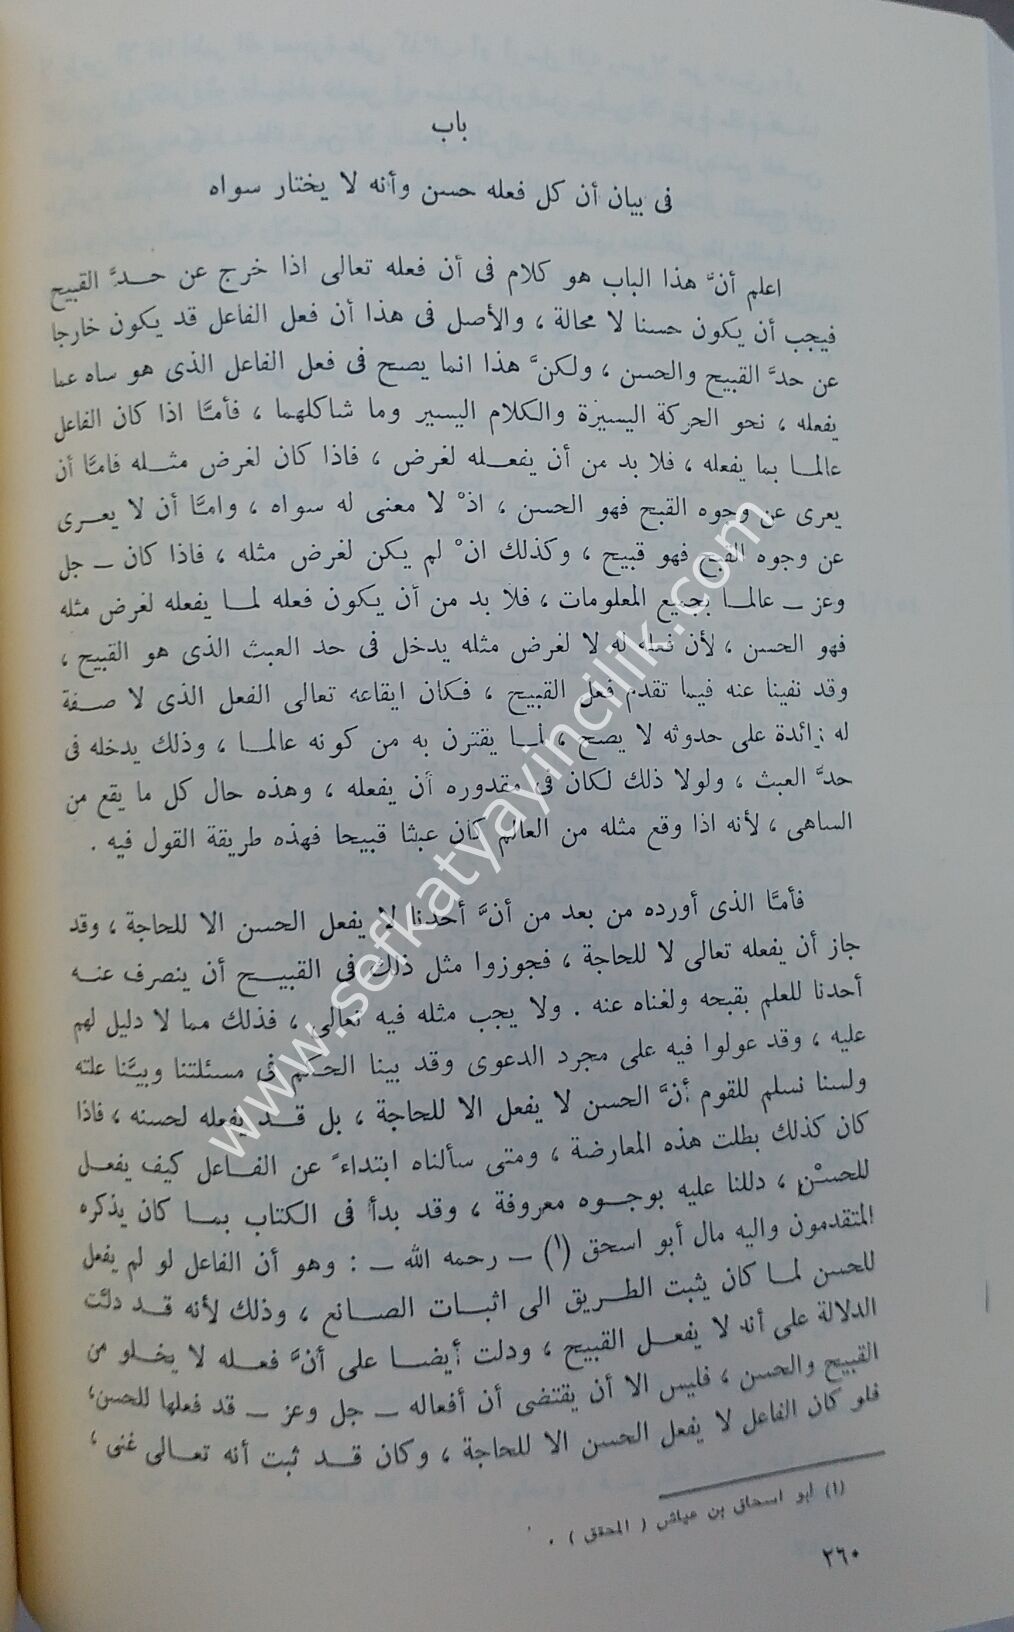 باب
فى بيان أن كل فعله حسن وأنه لا يختار سواه
اعلم أنَّ هذا الباب هو كلام فى أن فعله تعالى اذا خرج عن حــدَّ القبيح
فيجب أن يكون حسنا لا محالة ، والأصل فى هذا أن فعل الفاعل قد يكون خارجا
عن حدَّ القبيح والحسن ، ولكنَّ هذا انما يصح فى فعل الفاعل الذى هو ساه عما
يفعله ، نحو الحركة اليسيرة والكلام اليسير وما شاكلهما ، فأمَّا اذا كان الفاعل
عالمـا بما يفعله ، فلا بد من أن يفعـــله لغرض ، فاذا كان لغرض مثــله فامَّا أن
يعرى عن وجوه القبح فهو الحسن ، اذْ لا معنى له سواه ، وامَّا أن لا يعــرى
عن وجوه القبح فهو قبيح ، وكذلك انْ لم يكن لغرض مثله ، فاذا كان ــ جل
وعز ــ عالمـا بجميع المعلومات ، فلا بد من أن يكون فعله لمـا يفعله لغرض مثله
فهو الحسن ، لأن فعله له لا لغرض مثله يدخل فى حد العبث الذى هو القبيح ،
وقد نفينا عنه فيما تقدم فعل القبيح ، فكان ايقاعه تعالى الفعل الذى لا صــفة
له زائدة على حدوثه لا يصح ، لمـا يقترن به من كونه عالمـا ، وذلك يدخله فى
حدَّ العبث ، ولولا ذلك لكان فى مقدوره أن يفعله ، وهذه حال كل ما يقع من
الساهى ، لأنه اذا وقع مثله من العالم كان عبثا قبيحا فهذه طريقة القول فيه .
فأمَّا الذى أورده من بعد من أنَّ أحدنا لا يفعل الحسن الا للحاجة ، وقد
جاز أن يفعله تعالى لا للحاجة ، فجوزوا مثل ذلك فى القبيــح أن ينصرف عنــه
أحدنا للعلم بقبحه ولغناه عنه . ولا يجب مثله فيه تعالى ، فذلك مما لا دليل لهم
عليه ، وقد عولوا فيه على مجرد الدعوى وقد بينا الحكم فى مسئلتنا وبيَّنا علته
ولسنا نسلم للقوم أنَّ الحسن لا يفعل الا للحاجة ، بل قــد يفعله لحسنه ، فاذا
كان كذلك بطلت هذه المعارضة ، ومتى سألناه ابتداءً عن الفــاعل كيف يفعــل
للحسْن ، دللنا عليه بوجــوه معروفة ، وقد بدأ فى الكتاب بمــا كان يذكره
المتقدمون واليه مال أبو اسحق (١) ــ رحمه الله ــ : وهو أن الفاعل لو لم يفعل
للحسن لمــا كان يثبت الطــريق الى اثبــات الصــانع ، وذلك لأنه قــد دلَّت
الدلالة على أنه لا يفعــل القبيح ، ودلت أيضــا على أنَّ فعــله لا يخــلو من
القبيح والحسن ، فليس الا أن يقتضى أن أفعاله ــ جل وعز ــ قد فعلها للحسن،
فلو كان الفاعل لا يفعل الحسن الا للحاجة ، وكان قــد ثبت أنه تعــالى غنى ،
(١) أبو اسحاق بن عياش ( المحقق ) .
٢٦٠
www.sefkatyayincilik.com